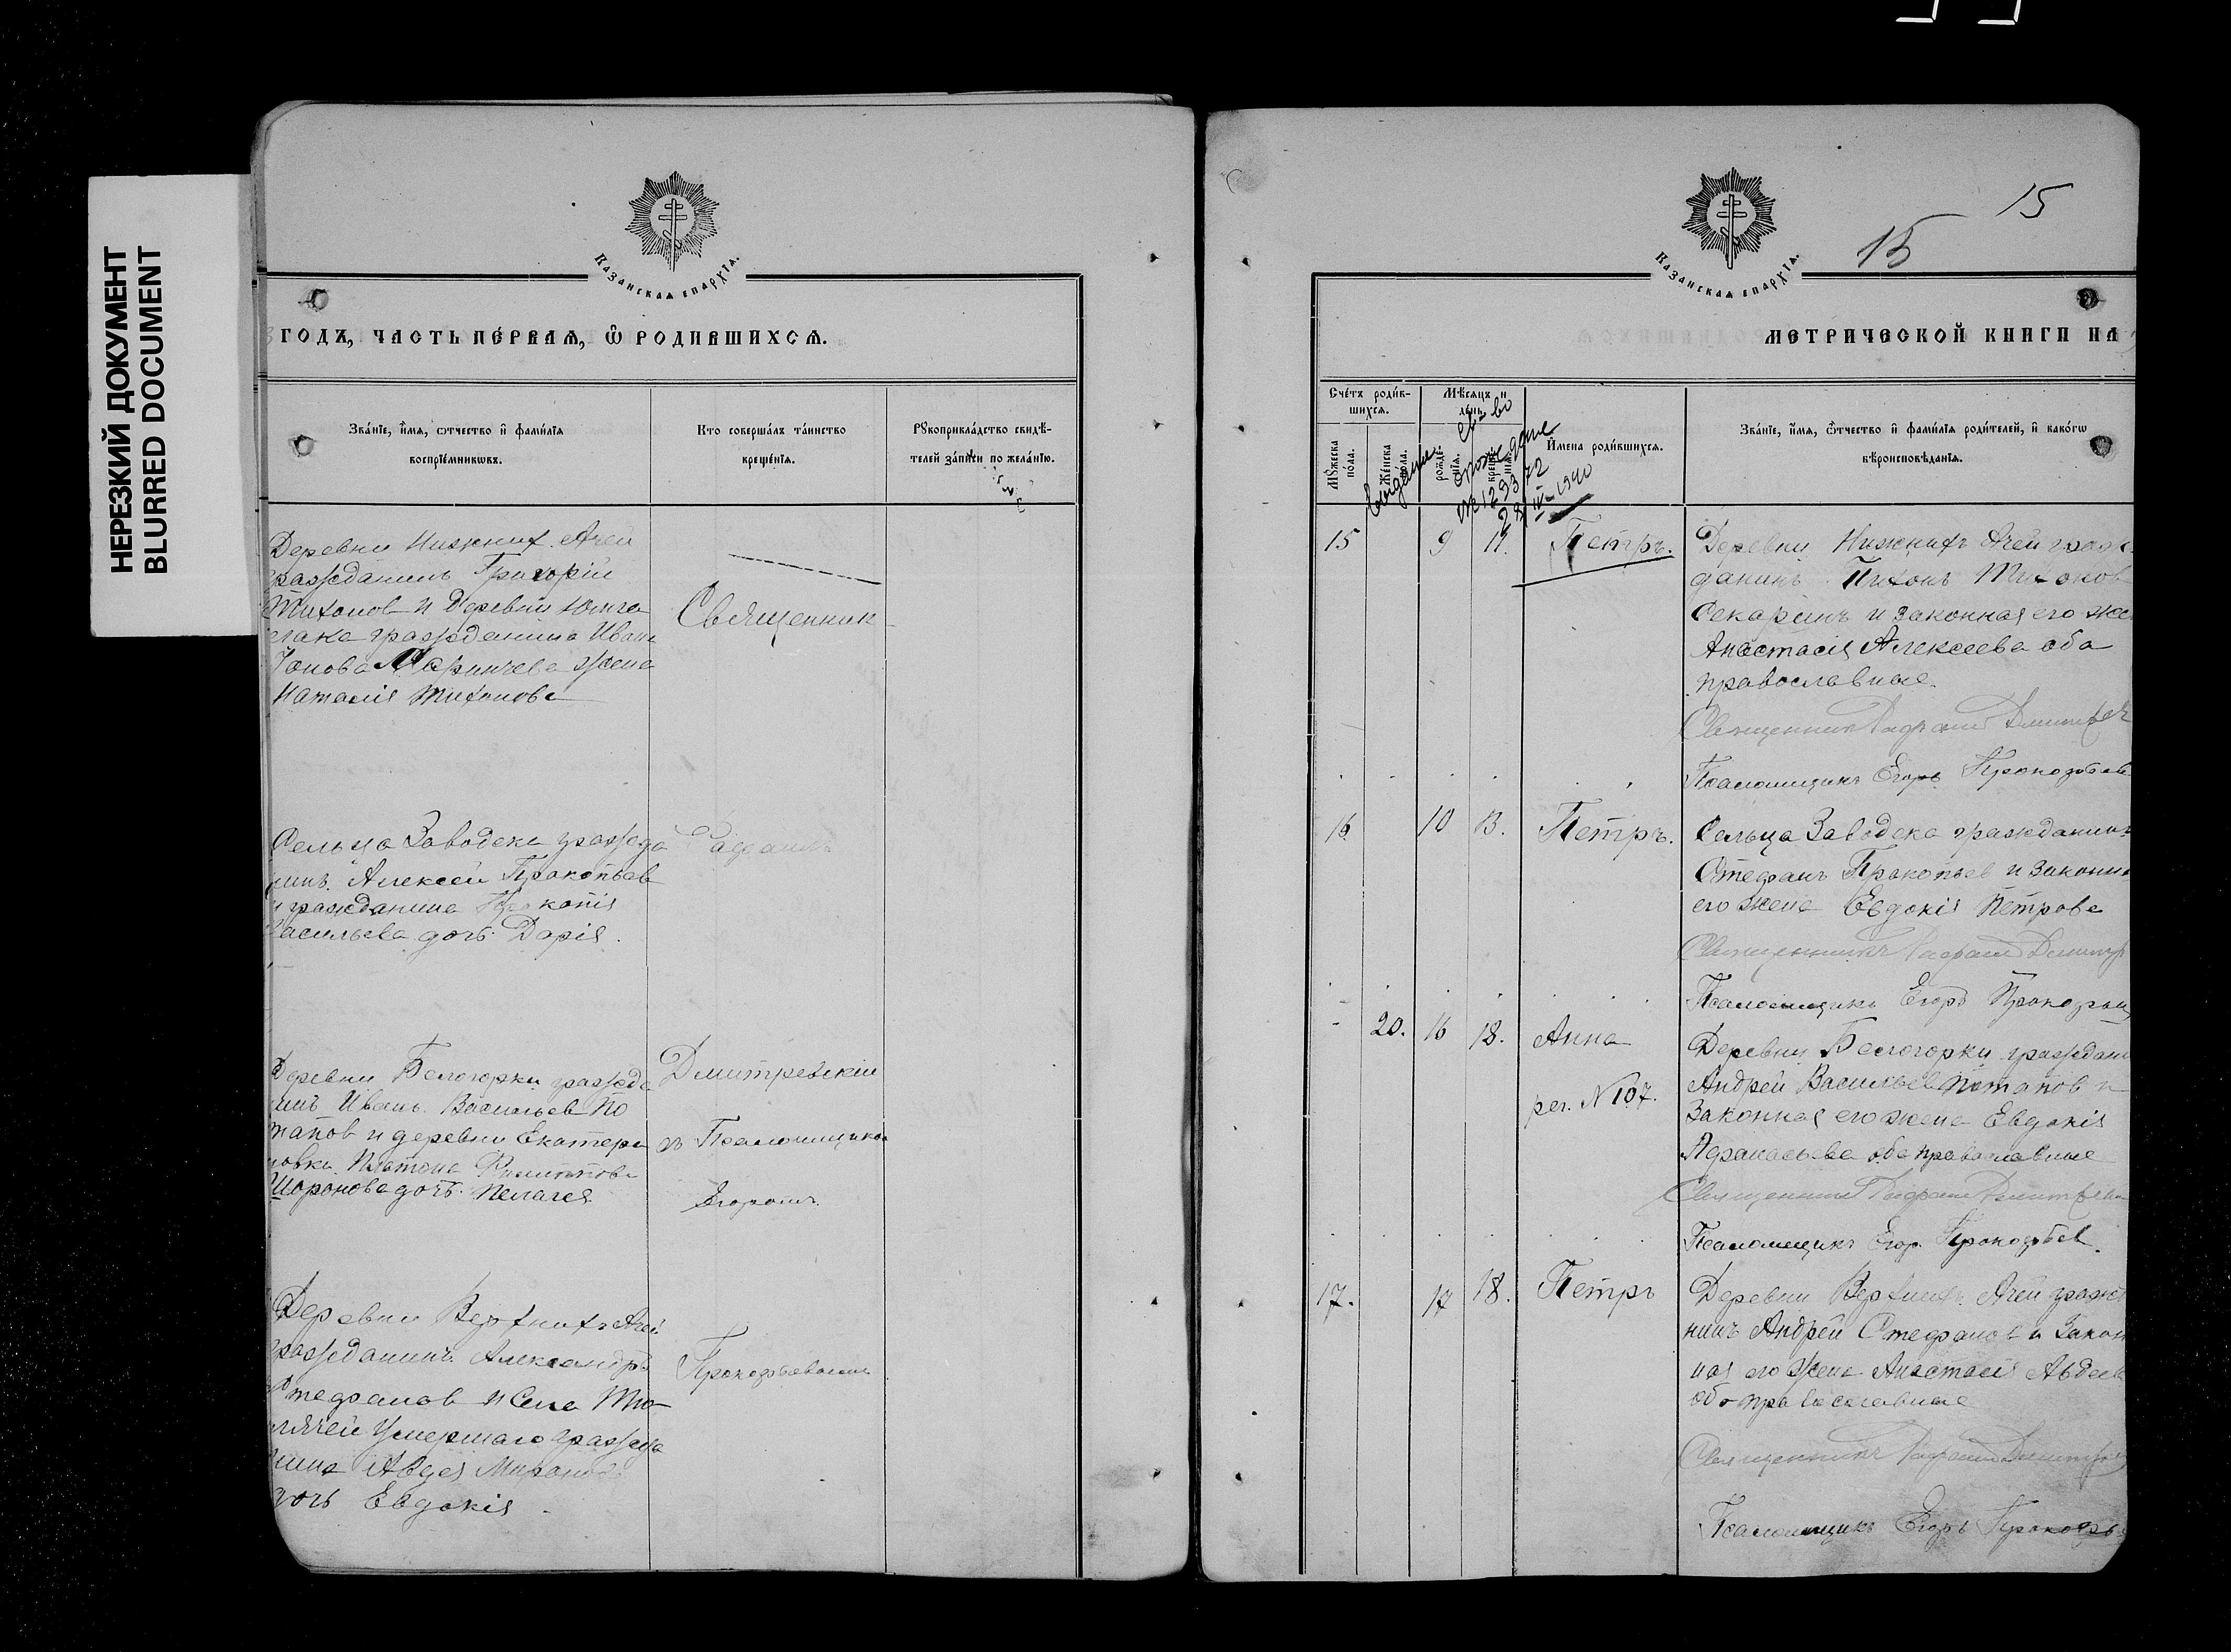 НЕРЕЗКИЙ ДОКУМЕНТ
BLURRED DOCUMENT
Казанская епархїа.
годъ, часть пе́рвая, ѿ родившихся.
Зва́нїе, и҆́мя, ѻтчество и҆ фами́лїя
воспрїе́мниковъ.
Кто соверша́лъ та́инство
креще́нїя.
Рꙋкоприкла́дство свидѣ́-
телей за́писи по жела́нїю.
Деревни Нижних Ачей
гражданинъ Григорій
Тихонов и деревни
гражданина Ивана
жена
Наталія Тихонова
Священник
Сельца Заводска гражда
нинъ Алексей Прокопьев
и гражданина Прокопія
Васильева дочь Дарія.
Деревни Белогорки гражда
нинъ Иванъ Васильев По
тапов и деревни Екатери
новки Платона Филиппова
дочь Пелагея
Дмитревскій
съ Псаломщиком
Егоромъ
Деревни Верхнихъ Ачей
гражданинъ Александръ
Стефанов и села Тю
лячей умершаго гражда
нина Авдея Миронова
дочь Евдокія.
Прокофьевымъ
15
15
Казанская епархїа.
метрической книги на
Сче́тъ роди́в-
шихся.
Мѣсяцъ и
де́нь.
Мꙋжеска
по́ла.
Же́нска
по́ла.
рожде́-
нїя.
креще́-
нїя.
И҆мена роди́вшихся.
Зва́нїе, и҆́мя, ѻ҆́тчество и҆ фами́лїя роди́телей, и҆ како́гѡ
вѣроисповѣ́данїя.
выдано св-во
о рождение
№ 129372
28/IV-1940
15 9 11. Петръ. Деревни Нижнихъ Ачей граж
данинъ Тихонъ Тихонов
Секаринъ и законная его же
Анастасія Алексеева оба
православные.
Священник Дмитрев
Псаломщикъ Егоръ Прокофьев
16 10 13. Петръ. Сельца Заводска гражданинъ
Стефанъ Прокопьев и законна
его жена Евдокія Петрова
Священникъ Дмитр
Псаломщикъ Егоръ Прокофьев
- 20. 16 18. Анна Деревни Белогорки граждан
Андрей Васильев Потапов и
рег. N 107.
законная его жена Евдокія
Афанасьева оба православные
Священник Дмитрев
Псаломщикъ Егор. Прокофьев.
17. 17 18. Петръ Деревни Верхнихъ Ачей гражд
нинъ Андрей Стефанов и закон
ная его жена Анастасія Авдеев
оба православные
Священникъ Дмитрев
Псаломщикъ Егоръ Прокофь